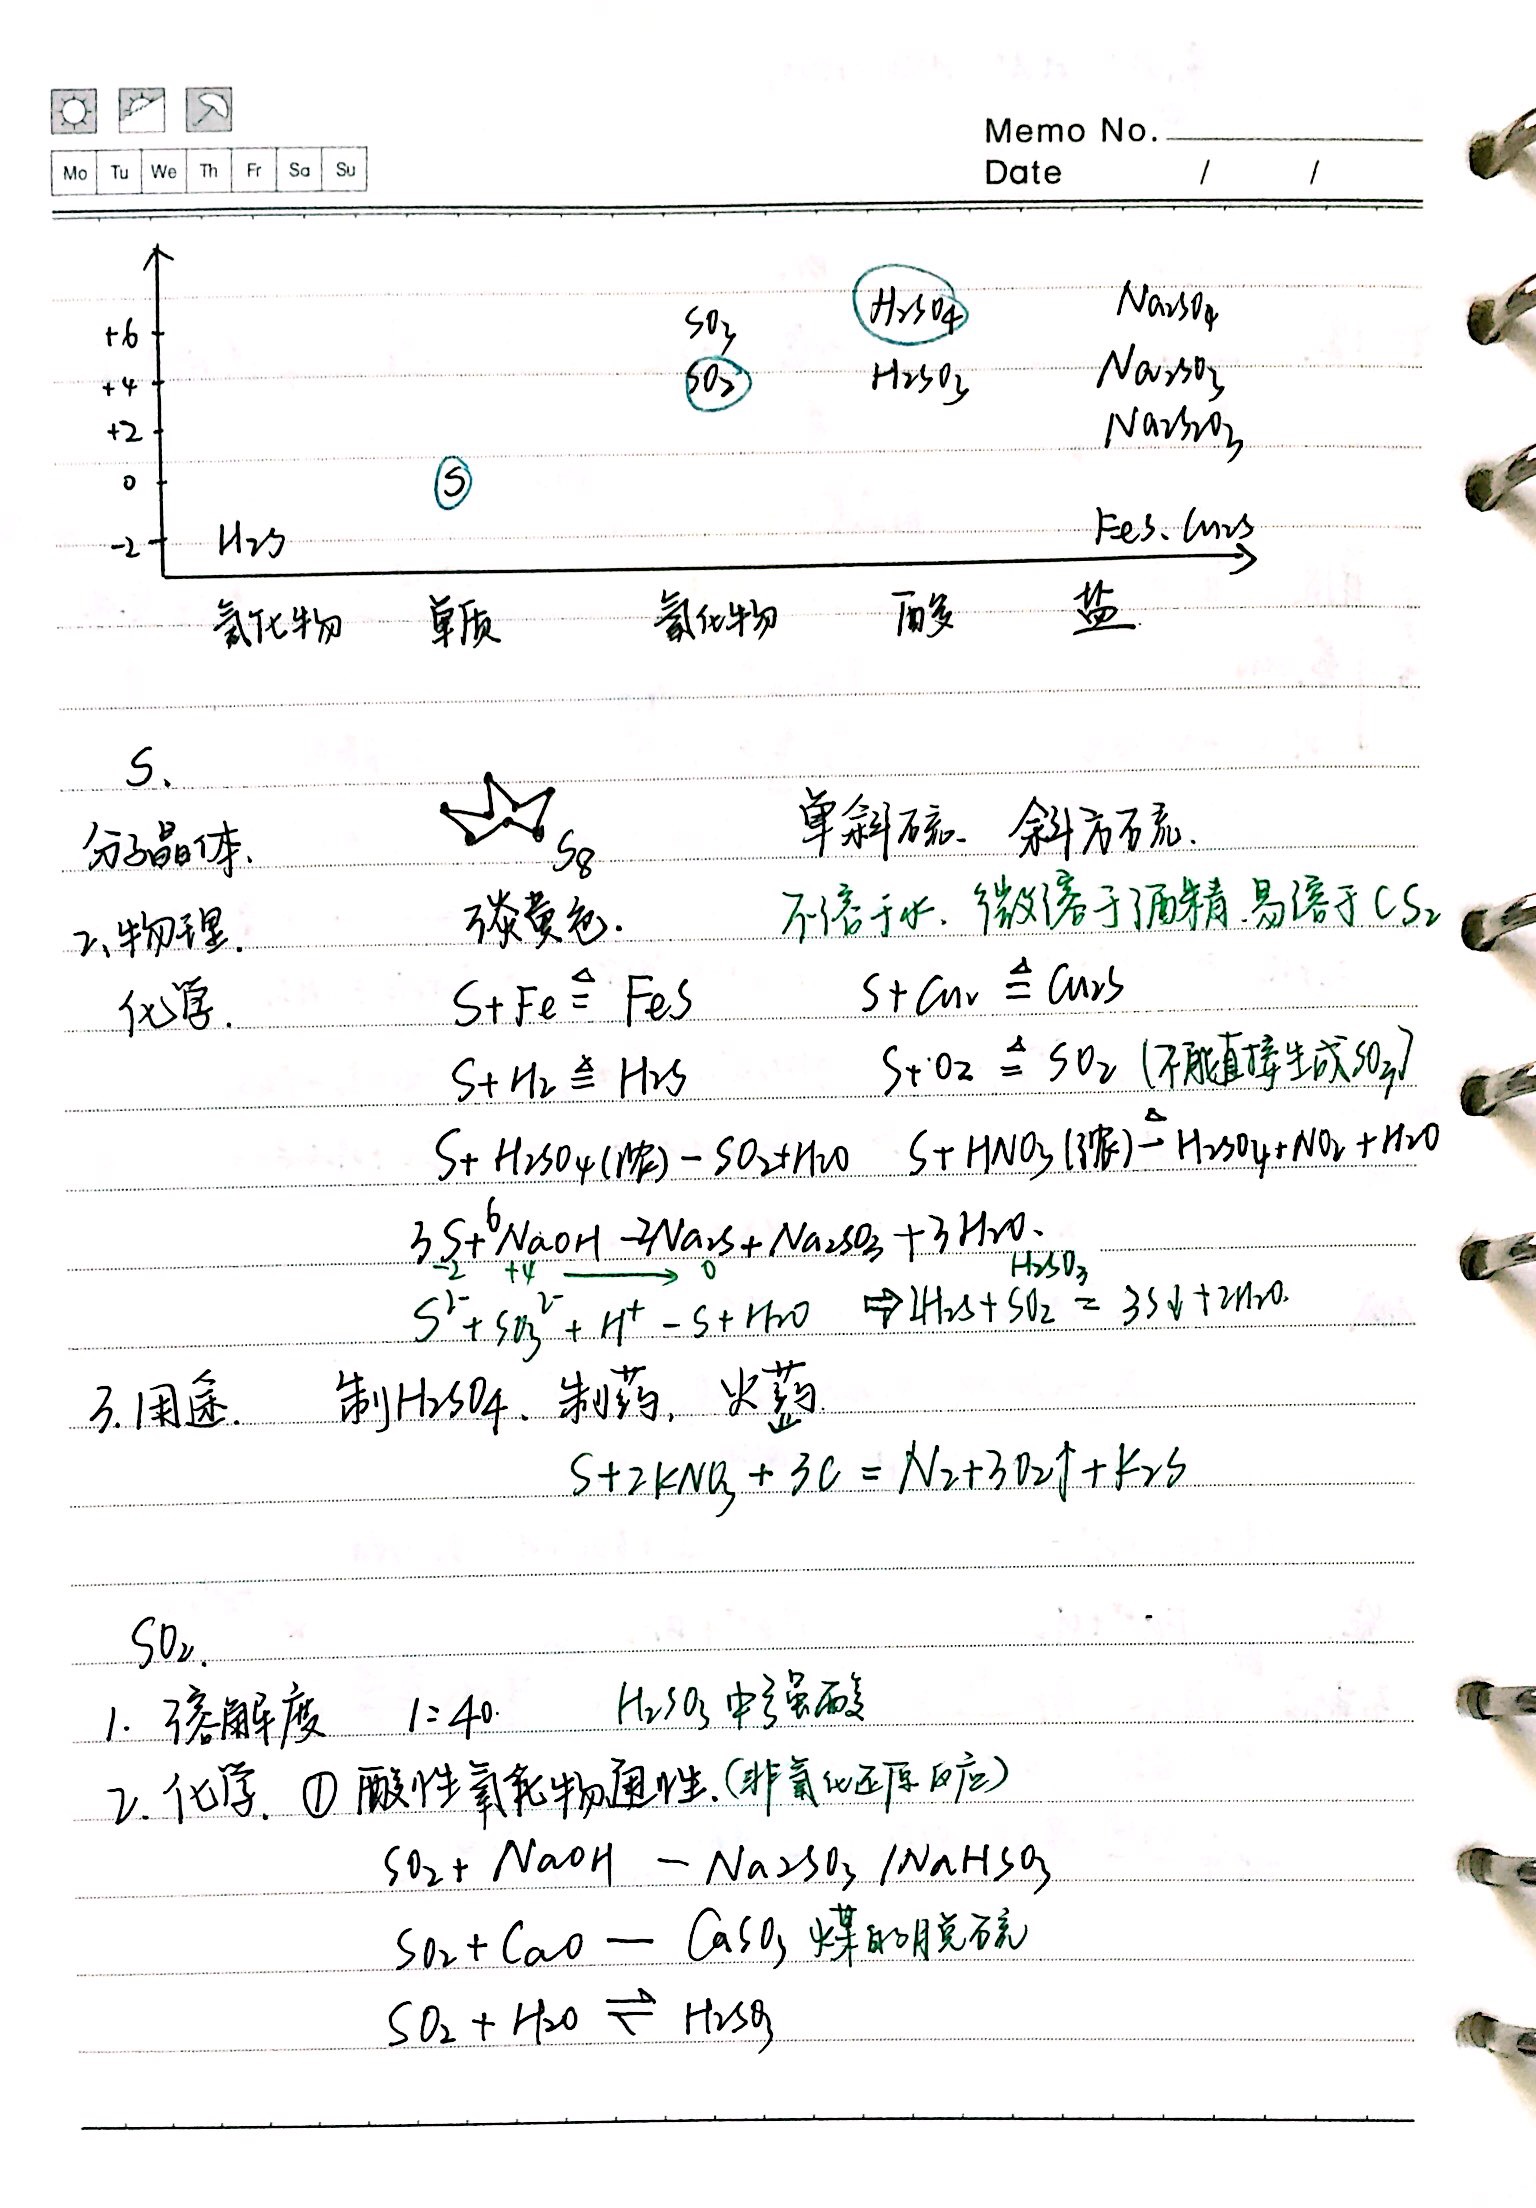 Memo No.
Mo Tu We Th Fr Sa Su
Date / /
+6 SO3 H2SO4 Na2SO4
+4 SO2 H2SO3 Na2SO3
+2 Na2S2O3
0 S
-2 H2S FeS、Cu2S
氢化物 单质 氧化物 酸 盐
S、
分子晶体、 S8 单斜硫、 斜方硫、
2、物理、 淡黄色. 不溶于水、微溶于酒精、易溶于CS2
化学. S+Fe ≜ FeS S+Cu ≜ Cu2S
S+H2 ≜ H2S S+O2 ≜ SO2 (不能直接生成SO3)
S+H2SO4(浓)-SO2+H2O S+HNO3(浓)-△H2SO4+NO2+H2O
3S+6NaOH-2Na2S+Na2SO3+3H2O.
-2 +4 → 0 H2SO3
S2-+SO32-+H+-S+H2O ⇨2H2S+SO2=3S↓+2H2O.
3.用途. 制H2SO4、制药、火药
S+2KNO3+3C=N2+3O2↑+K2S
SO2.
1. 溶解度 1:40. H2SO3中强酸
2. 化学. ① 酸性氧化物通性.(非氧化还原反应)
SO2+NaOH-Na2SO3/NaHSO3
SO2+CaO-CaSO3 煤的脱硫
SO2+H2O⇌H2SO3